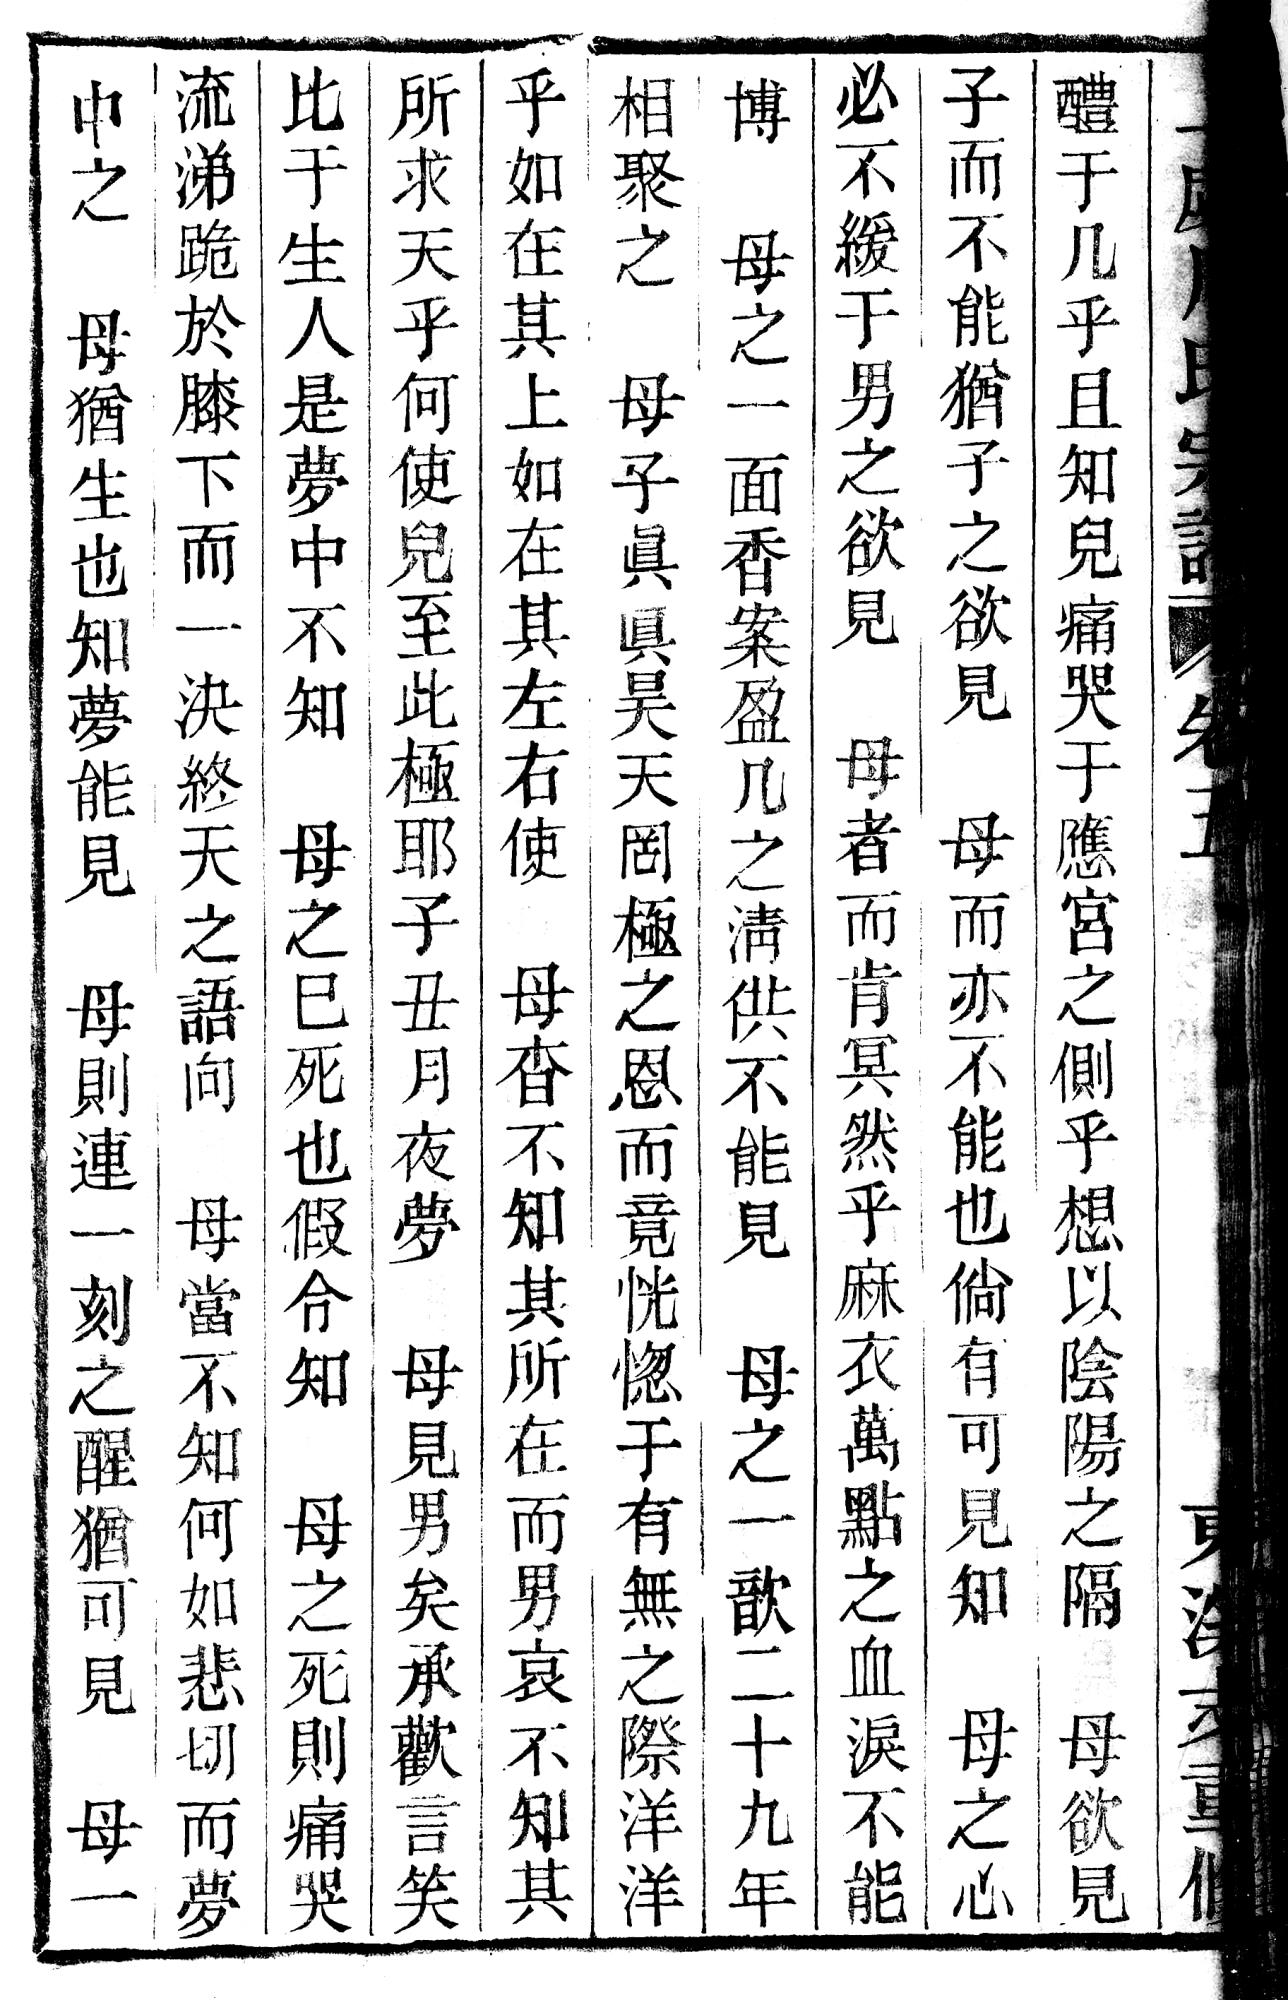 醴于几乎且知兒痛哭于應宮之側乎想以陰陽之隔　母欲見
子而不能猶子之欲見　母而亦不能也倘有可見知　母之心
必不緩于男之欲見　母者而肯冥然乎麻衣萬點之血淚不能
博　母之一面香案盈几之淸供不能見　母之一歆二十九年
相聚之　母子眞眞昊天罔極之恩而竟恍惚于有無之際洋洋
乎如在其上如在其左右使　母杳不知其所在而男哀不知其
所求天乎何使兒至此極耶子丑月夜夢　母見男矣承歡言笑
比于生人是夢中不知　母之巳死也假令知　母之死則痛哭
流涕跪於膝下而一決終天之語向　母當不知何如悲切而夢
中之　母猶生也知夢能見　母則連一刻之醒猶可見　母一